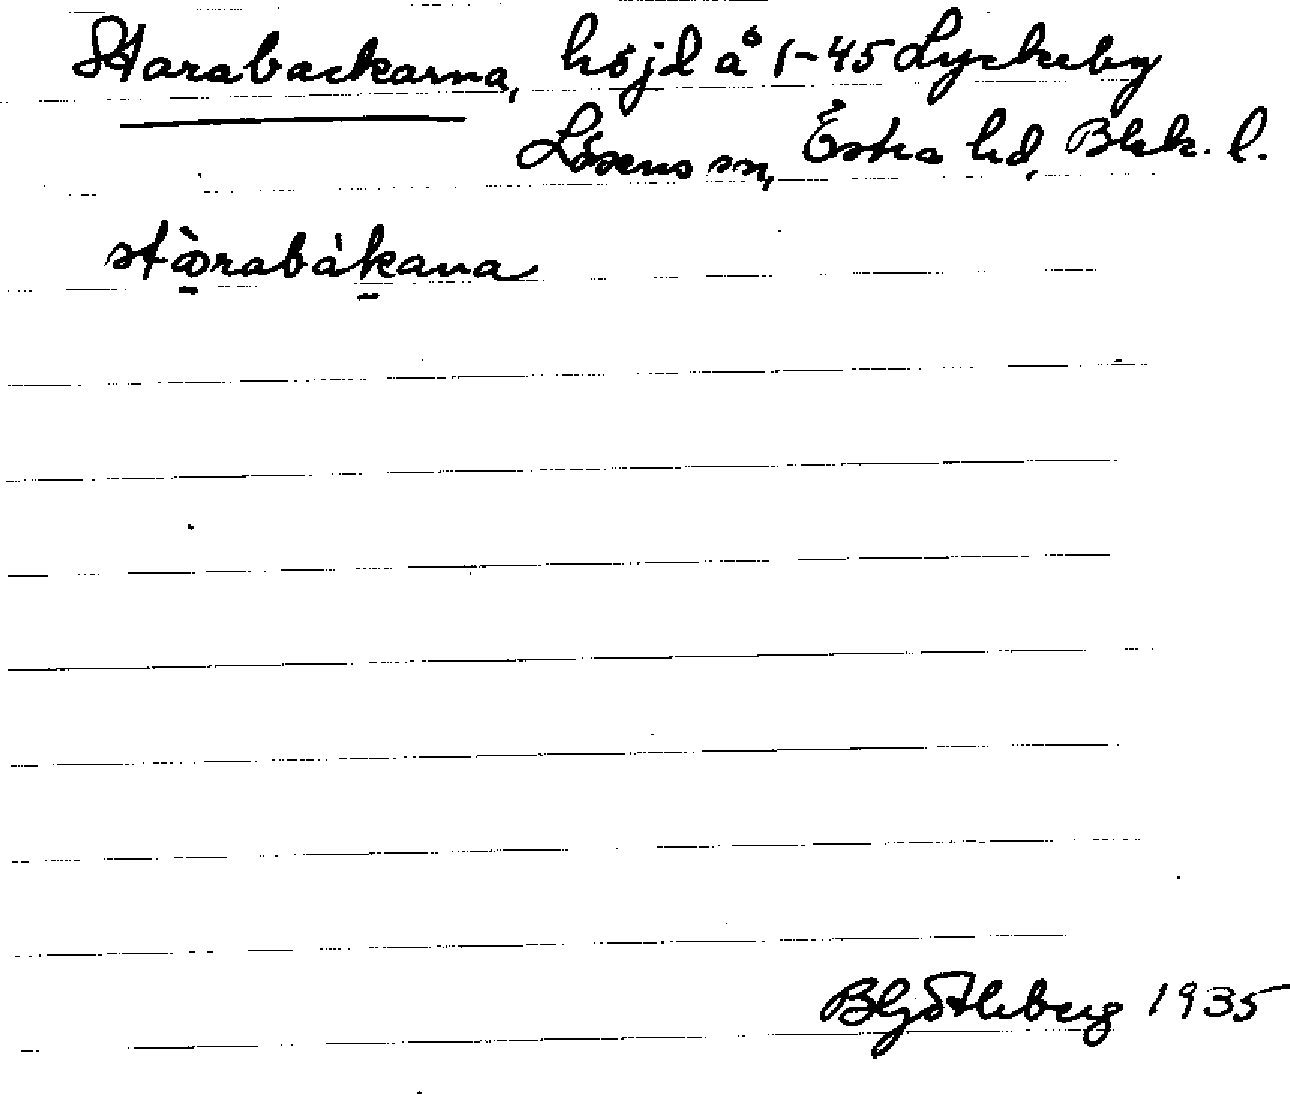 Starabackarna, höjd å 1-45 Lyckeby
Lösens sn, Östra hd, Blek. l.
stàrabákana
BGötleberg 1935